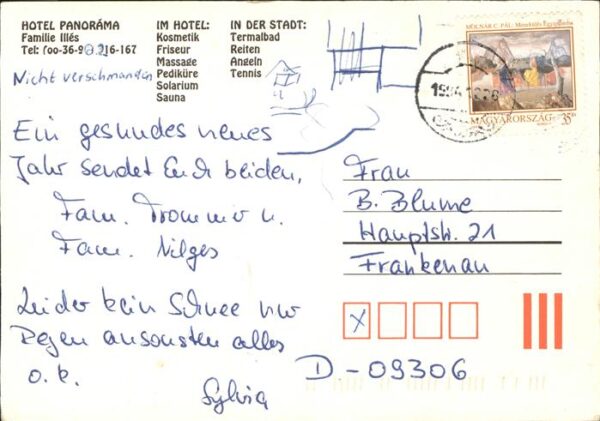 HOTEL PANORÁMA
Familie Illés
Tel: 00-36-9 216-167
IM HOTEL:
Kosmetik
Friseur
Massage
Pediküre
Solarium
Sauna
IN DER STADT:
Termalbad
Reiten
Angeln
Tennis
Nicht verschmanden
MOLNÁR C. PÁL
MAGYARORSZÁG
Ein gesundes neues
Jahr sendet Euch beiden,
Fam. u.
Fam. Nilges
Leider kein Schnee nur
Regen ansonsten alles
o.k.
Sylvia
Frau
B. Blume
Hauptstr. 21
Frankenau
X
D-09306